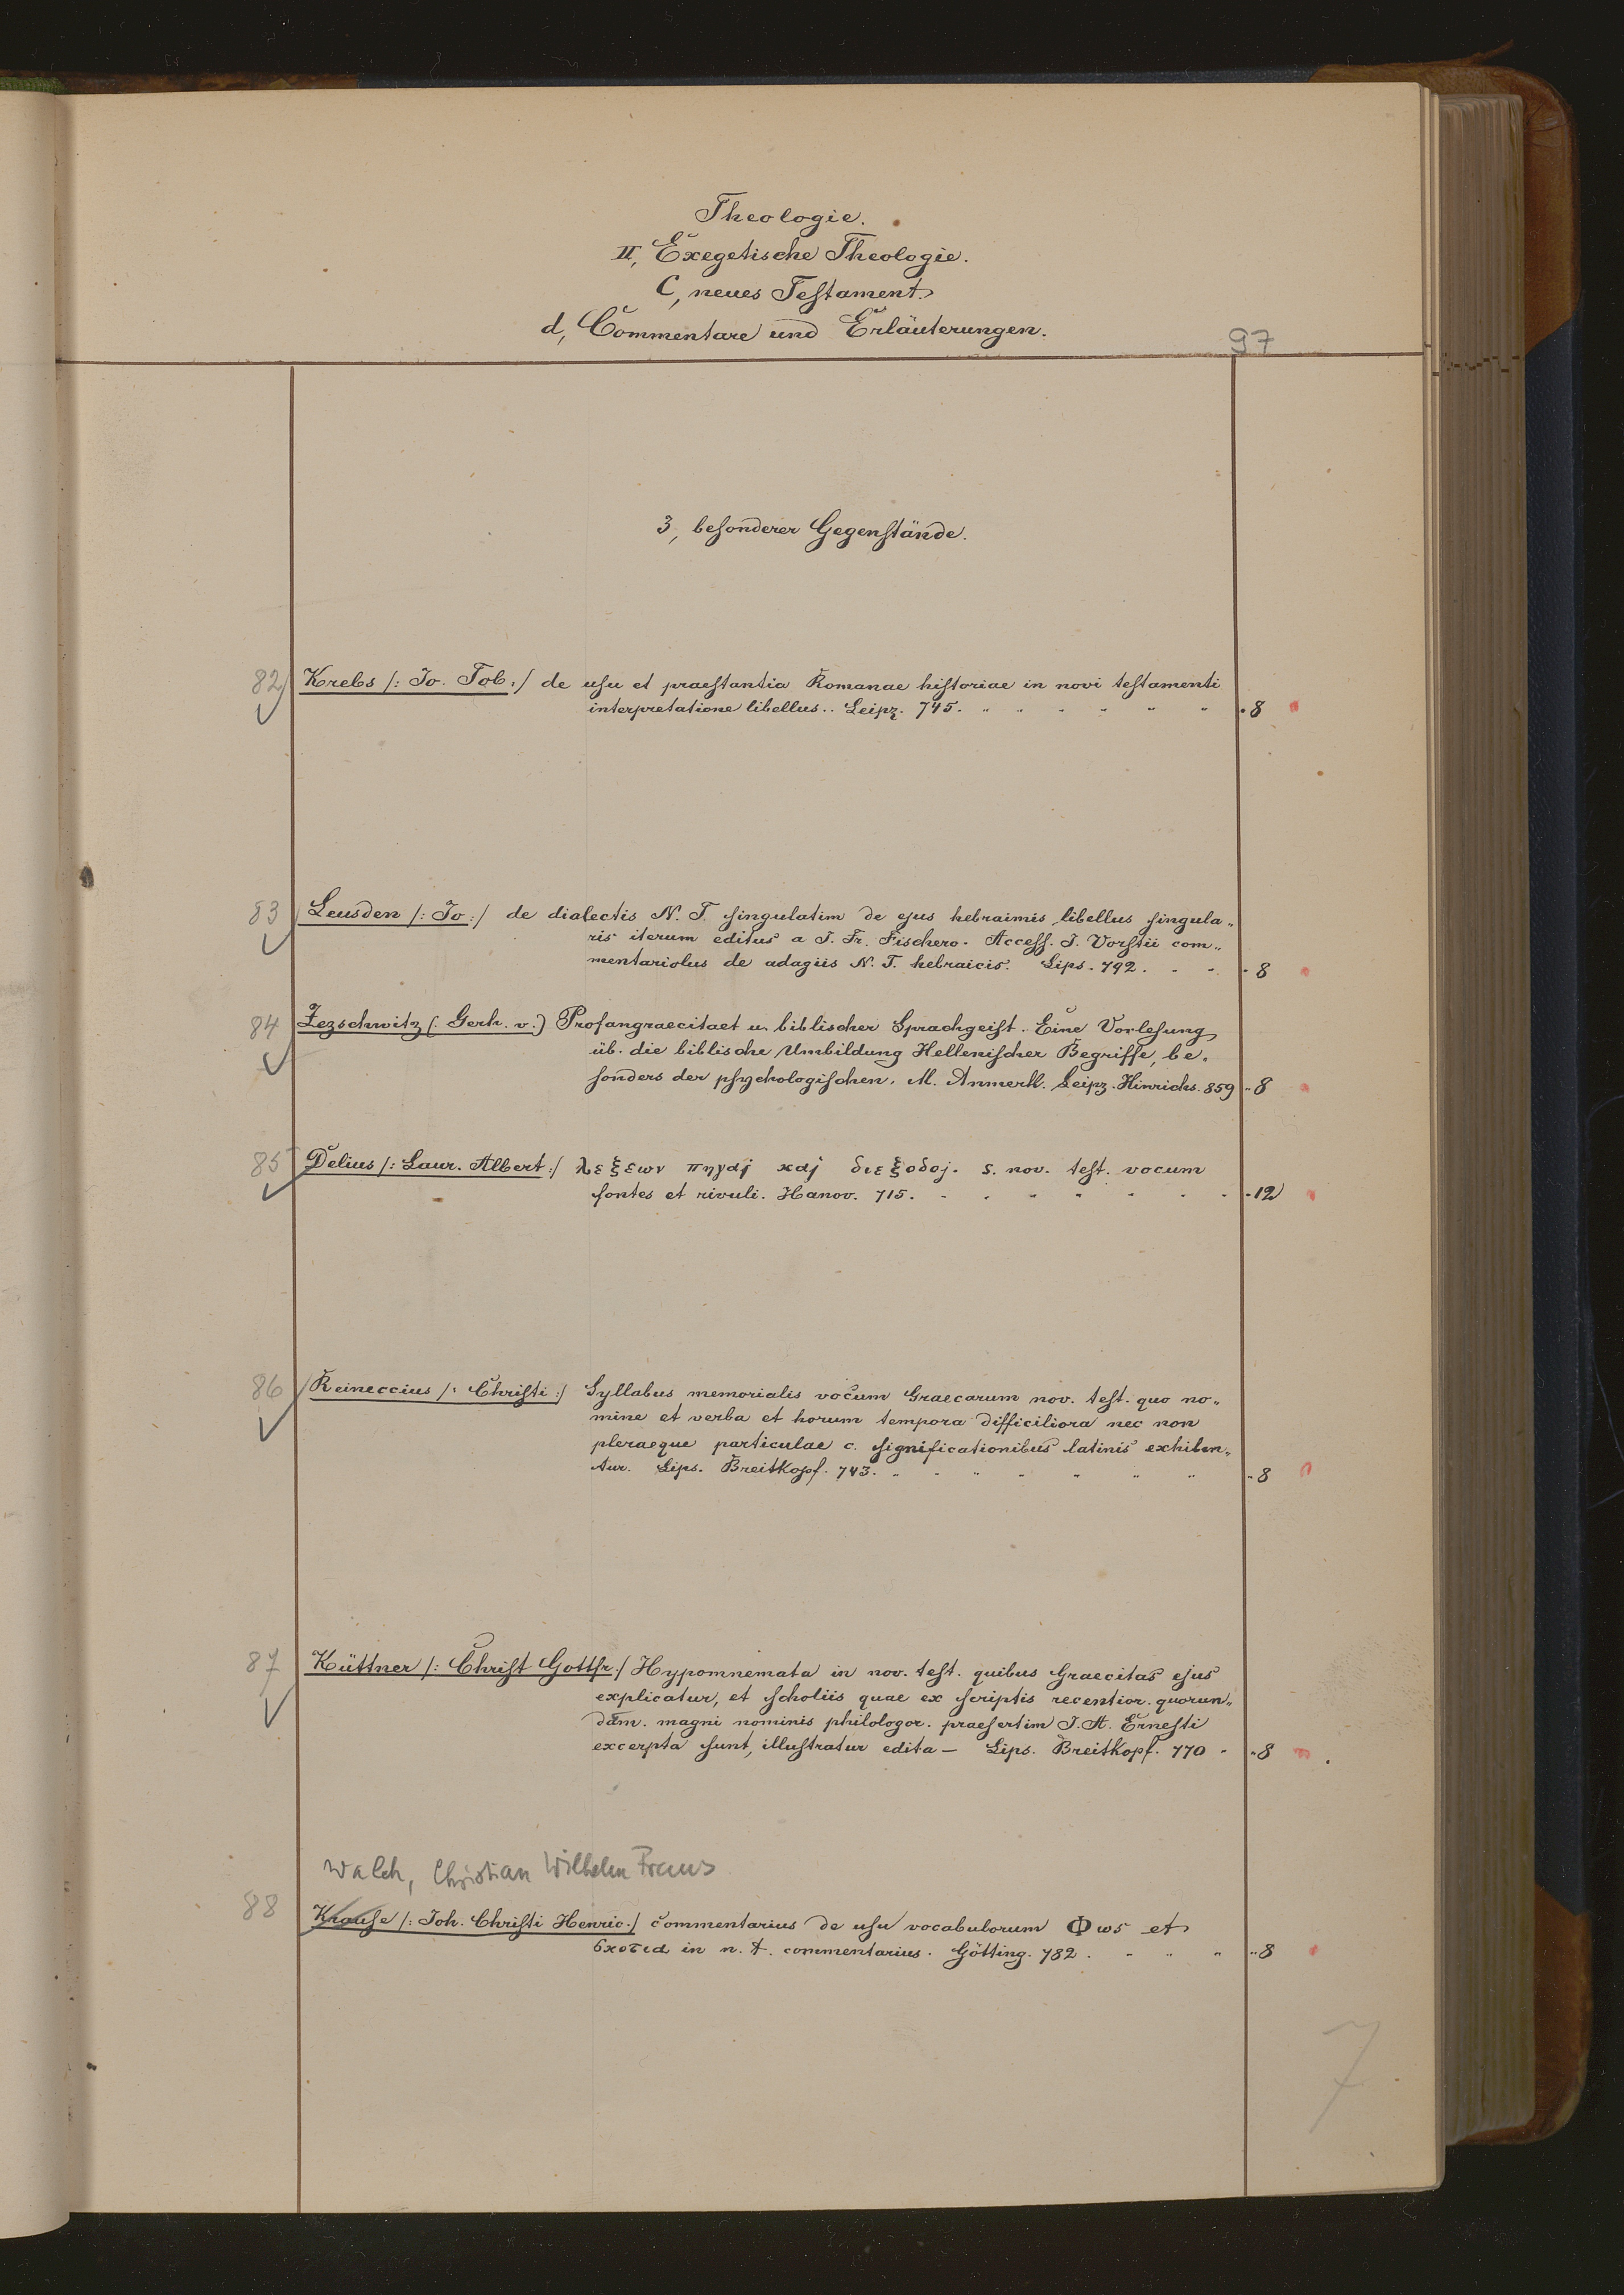 Theologie.
II, Exegetische Theologie.
C, neues Testament.
d, Commentare und Erläuterungen.
97
3, besonderer Gegenstände.
82 Krebs /: Jo. Tob: / de usu et praestantia Romanae historiae in novi testamenti
interpretatione libellus.. Leipz. 745. " " " " " " " 8
83 Leusden /: Jo: / de dialectis N. T. singulatim de ejus hebraimis libellus singula„
ris iterum editus a J. Fr. Fischero. Access. J. Vorstii com„
mentariolus de adagiis N. T. hebraicis. Lips. 792. " " " 8
84 Zezschwitz (: Gerh. v.:) Profangraecitaet u. biblischer Sprachgeist. Eine Vorlesung
üb. die biblische Umbildung Hellenischer Begriffe, be„
sonders der psychologischen. M. Anmerk. Leipz. Hinrichs. 859 " 8
85 Delius /: Laur. Albert: / λεξεων πηγαι και διεξοδοι. s. nov. test. vocum
fontes et rivuli. Hanov. 715. " " " " " " " 12
86 Reineccius /: Christi: / Syllabus memorialis vocum Graecarum nov. test. quo no„
mine et verba et horum tempora difficiliora nec non
pleraeque particulae c. significationibus latinis exhiben„
tur. Lips. Breitkopf. 743. " " " " " " " " 8
87 Küttner /: Christ Gottfr: / Hypomnemata in nov. test. quibus Graecitas ejus
explicatur, et scholiis quae ex scriptis recentior. quorun„
dam. magni nominis philologor. praesertim J. A. Ernesti
excerpta sunt, illustratur edita — Lips. Breitkopf. 770 " " 8
Walch, Christian Wilhelm Franz
88 Krause /: Joh. Christi Henric: / commentarius de usu vocabulorum Φως et
σκοτια in n. t. commentarius. Götting. 782. " " " " 8
7